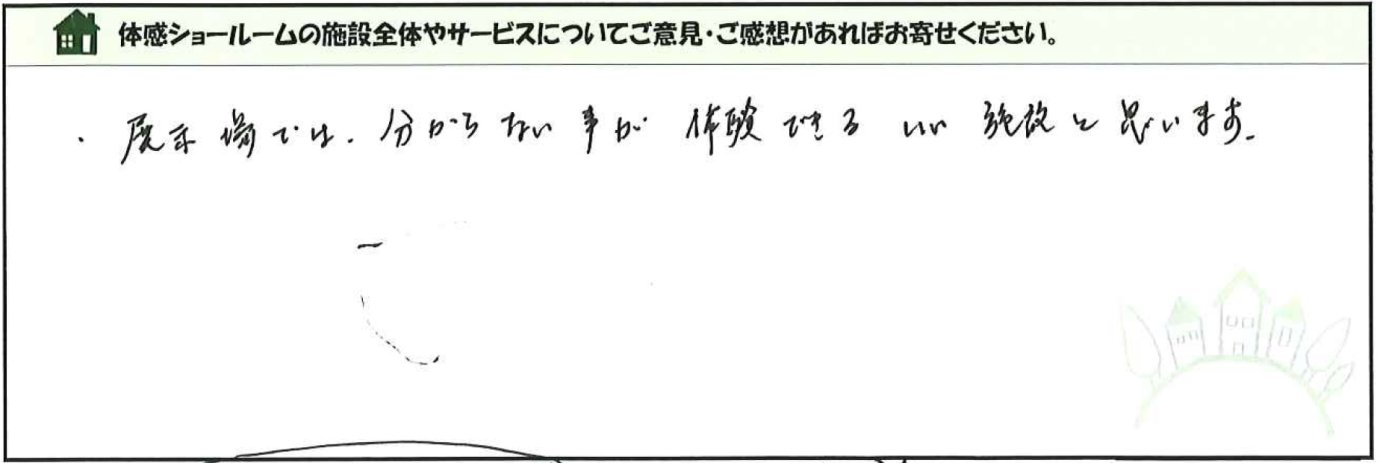 体感ショールームの施設全体やサービスについてご意見・ご感想があればお寄せください。
・展示場では、分からない事が 体験できる いい 施設と思います。